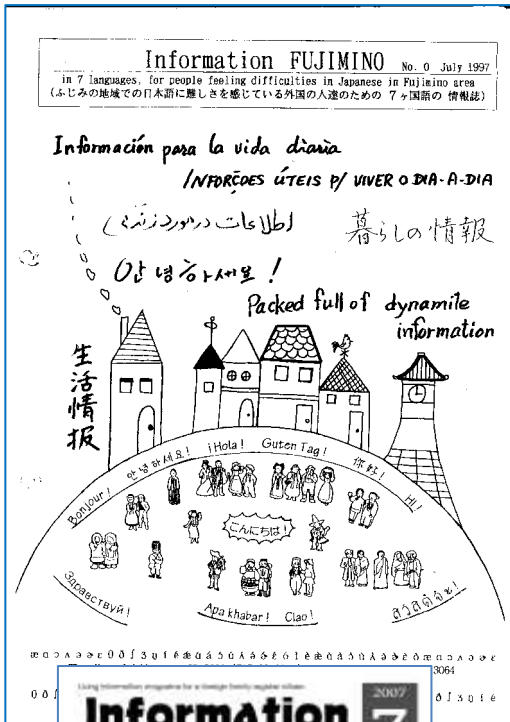 Information FUJIMINO No. 0 July 1997
in 7 languages, for people feeling difficulties in Japanese in Fujimino area
(ふじみの地域での日本語に難しさを感じている外国の人達のための 7ヶ国語の 情報誌)
Información para la vida diaria
INFORÇOES ÚTEIS P/ VIVER O DIA-A-DIA
اطلاعات در مورد زندگی
暮らしの情報
안녕하세요!
Packed full of dynamile
information
生活情报
Bonjour! 안녕하세요! ¡Hola! Guten Tag! 你好! Hi!
こんにちは!
Здравствуй! Apa khabar! Ciao! สวัสดีค่ะ!
3064
Living information magazine for a foreign family register citizen
2007
Information 7